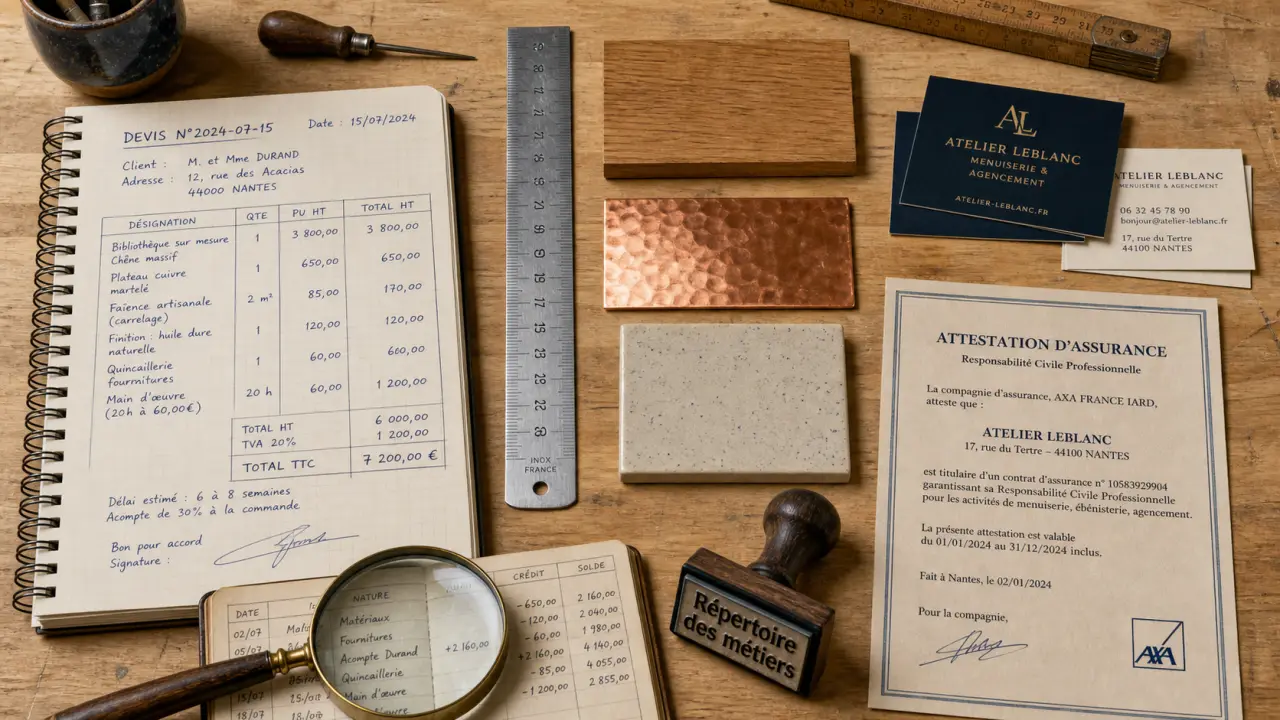 DEVIS N°2024-07-15 Date : 15/07/2024
Client : M. et Mme DURAND
Adresse : 12, rue des Acacias
44000 NANTES
DÉSIGNATION QTE PU HT TOTAL HT
Bibliothèque sur mesure 1 3 800,00 3 800,00
Chêne massif
Plateau cuivre 1 650,00 650,00
martelé
Faïence artisanale 2 m² 85,00 170,00
(carrelage)
Finition : huile dure 1 120,00 120,00
naturelle
Quincaillerie 1 60,00 660,00
fournitures
Main d'œuvre 20 h 60,00 1 200,00
(20h à 60,00€)
TOTAL HT 6 000,00
TVA 20% 1 200,00
TOTAL TTC 7 200,00 €
Délai estimé : 6 à 8 semaines
Acompte de 30% à la commande
Bon pour accord
Signature :
INOX
FRANCE
AL
ATELIER LEBLANC
MENUISERIE &
AGENCEMENT
ATELIER-LEBLANC.FR
ATELIER LEBLANC
MENUISERIE & AGENCEMENT
06 32 45 78 90
bonjour@atelier-leblanc.fr
17, rue du Tertre
44100 NANTES
ATTESTATION D'ASSURANCE
Responsabilité Civile Professionnelle
La compagnie d'assurance, AXA FRANCE IARD,
atteste que :
ATELIER LEBLANC
17, rue du Tertre – 44100 NANTES
est titulaire d'un contrat d'assurance n° 10583929904
garantissant sa Responsabilité Civile Professionnelle
pour les activités de menuiserie, ébénisterie, agencement.
La présente attestation est valable
du 01/01/2024 au 31/12/2024 inclus.
Fait à Nantes, le 02/01/2024
Pour la compagnie,
AXA
DATE NATURE CRÉDIT SOLDE
02/07 Matériaux -650,00 2 160,00
05/07 Fournitures -120,00 2 040,00
-60,00 1 980,00
Acompte Durand +2 160,00 +2 160,00 4 140,00
Quincaillerie -85,00 4 055,00
Main d'œuvre -1 200,00 2 855,00
18/07
Répertoire
des métiers